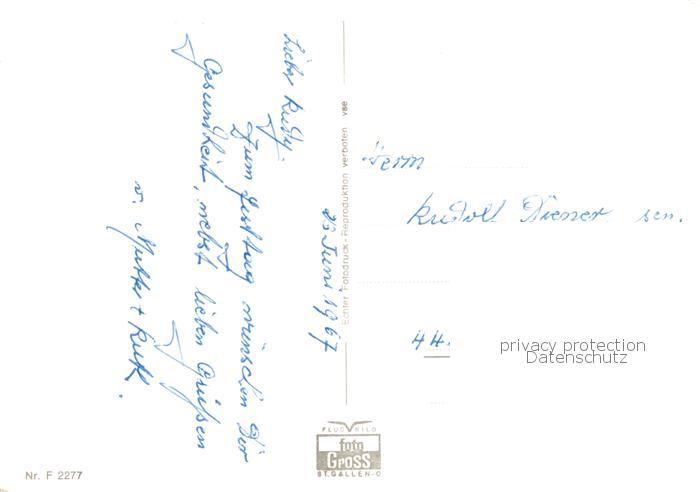 25 Juni 1967
Lieber Rudy.
Zum Festtag wünschen Dir
Gesundheit, nebst lieben Grüßen
v. Mutter + Ruth.
Herrn
Rudolf Diener sen.
44.
privacy protection
Datenschutz
Echter Fotodruck - Reproduktion verboten vse
FLUGBILD
foto
Gross
ST. GALLEN-O
Nr. F 2277